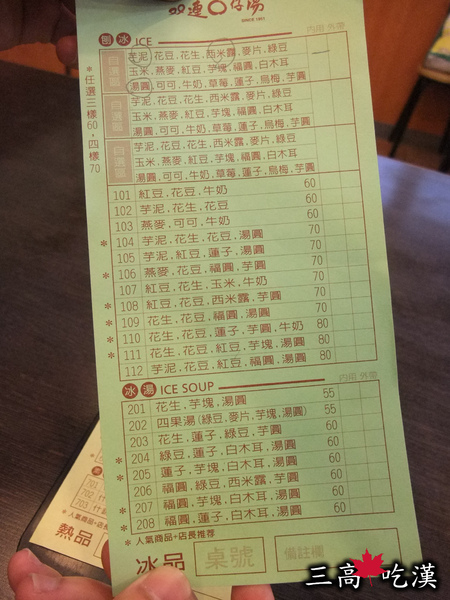 双連〇仔湯
SINCE 1951
刨冰 ICE 內用 外帶
*任選三樣60,四樣70
自選區
芋泥,花豆,花生,西米露,麥片,綠豆
玉米,燕麥,紅豆,芋塊,福圓,白木耳
湯圓,可可,牛奶,草莓,蓮子,烏梅,芋圓
自選區
芋泥,花豆,花生,西米露,麥片,綠豆
玉米,燕麥,紅豆,芋塊,福圓,白木耳
湯圓,可可,牛奶,草莓,蓮子,烏梅,芋圓
自選區
芋泥,花豆,花生,西米露,麥片,綠豆
玉米,燕麥,紅豆,芋塊,福圓,白木耳
湯圓,可可,牛奶,草莓,蓮子,烏梅,芋圓
101 紅豆,花豆,牛奶 60
102 芋泥,花生,花豆 60
103 燕麥,可可,牛奶 60
*104 芋泥,花生,花豆,湯圓 70
105 芋泥,紅豆,蓮子,湯圓 70
*106 燕麥,花豆,福圓,芋圓 70
107 紅豆,花生,玉米,牛奶 70
*108 紅豆,花豆,西米露,芋圓 70
*109 花生,花豆,福圓,湯圓 70
*110 花生,花豆,蓮子,芋圓,牛奶 80
*111 花生,花豆,紅豆,芋塊,湯圓 80
112 芋泥,花豆,紅豆,福圓,湯圓 80
冰湯 ICE SOUP 內用 外帶
201 花生,芋塊,湯圓 55
202 四果湯(綠豆,麥片,芋塊,湯圓) 55
203 花生,蓮子,綠豆,芋圓 60
*204 綠豆,蓮子,白木耳,湯圓 60
*205 蓮子,芋塊,白木耳,湯圓 60
206 福圓,綠豆,西米露,芋圓 60
*207 福圓,芋塊,白木耳,湯圓 60
*208 福圓,蓮子,白木耳,湯圓 60
*人氣商品+店長推荐
冰品 桌號 備註欄
701
702
703
*人氣商品+店
熱品
三高吃漢